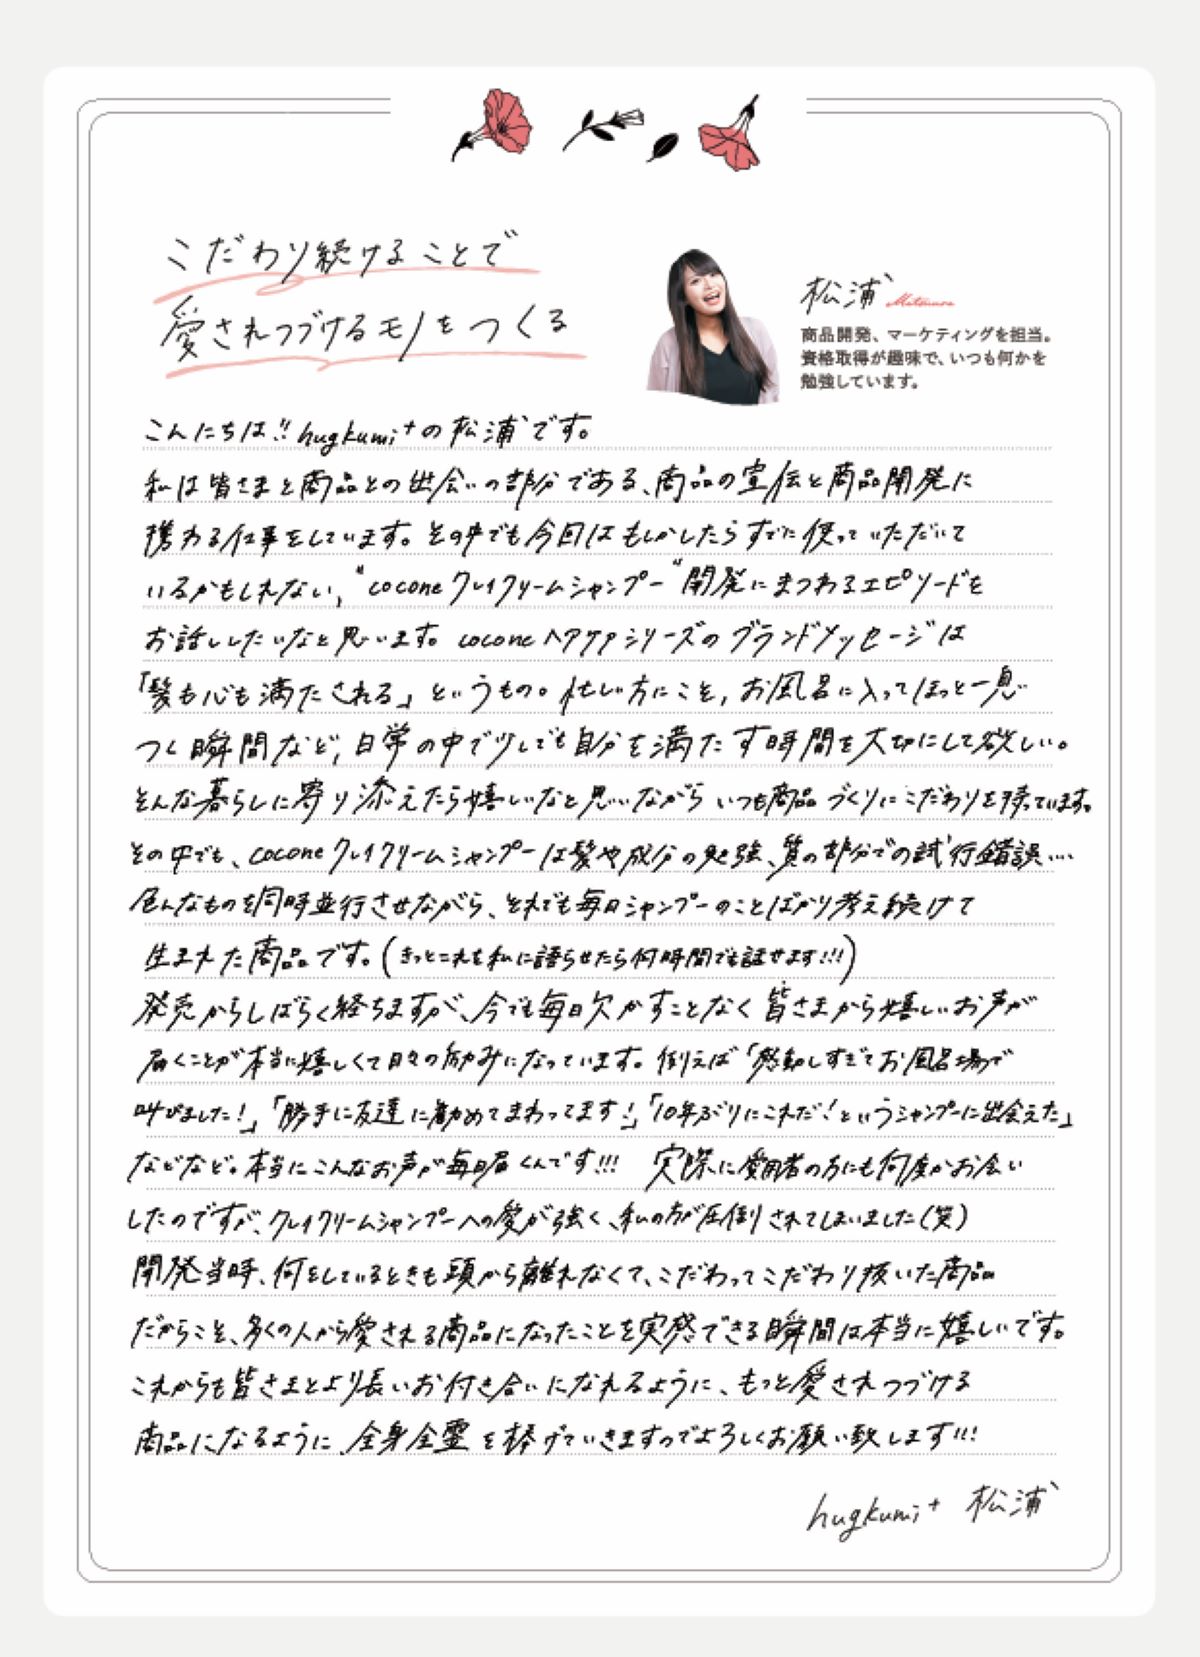 こだわり続けることで
愛されつづけるモノをつくる
松浦 Matsuura
商品開発、マーケティングを担当。
資格取得が趣味で、いつも何かを
勉強しています。
こんにちは!! hugkumi+の松浦です。
私は皆さまと商品との出会いの部分である、商品の宣伝と商品開発に
携わる仕事をしています。その中でも今回はもしかしたらすでに使っていただいて
いるかもしれない,"coconeクレイクリームシャンプー"開発にまつわるエピソードを
お話ししたいなと思います。coconeヘアケアシリーズのブランドメッセージは
「髪も心も満たされる」というもの。忙しい方にこそ,お風呂に入ってほっと一息
つく瞬間など,日常の中で少しでも自分を満たす時間を大切にして欲しい。
そんな暮らしに寄り添えたら嬉しいなと思いながらいつも商品づくりにこだわりを持っています。
その中でも、coconeクレイクリームシャンプーは髪や成分の勉強、質の部分での試行錯誤…
色んなものを同時並行させながら、それでも毎日シャンプーのことばかり考え続けて
生まれた商品です。(きっとこれを私に語らせたら何時間でも話せます!!!)
発売からしばらく経ちますが、今でも毎日欠かすことなく皆さまから嬉しいお声が
届くことが本当に嬉しくて日々の励みになっています。例えば「感動しすぎてお風呂場で
叫びました!」「勝手に友達に勧めてまわってます!」「10年ぶりにこれだ!というシャンプーに出会えた」
などなど。本当にこんなお声が毎日届くんです!!! 実際に愛用者の方にも何度かお会い
したのですが、クレイクリームシャンプーへの愛が強く、私の方が圧倒されてしまいました(笑)
開発当時、何をしているときも頭から離れなくて、こだわってこだわり抜いた商品
だからこそ、多くの人から愛される商品になったことを実感できる瞬間は本当に嬉しいです。
これからも皆さまとより長いお付き合いになれるように、もっと愛されつづける
商品になるように、全身全霊を捧げていきますのでよろしくお願い致します!!!
hugkumi+ 松浦